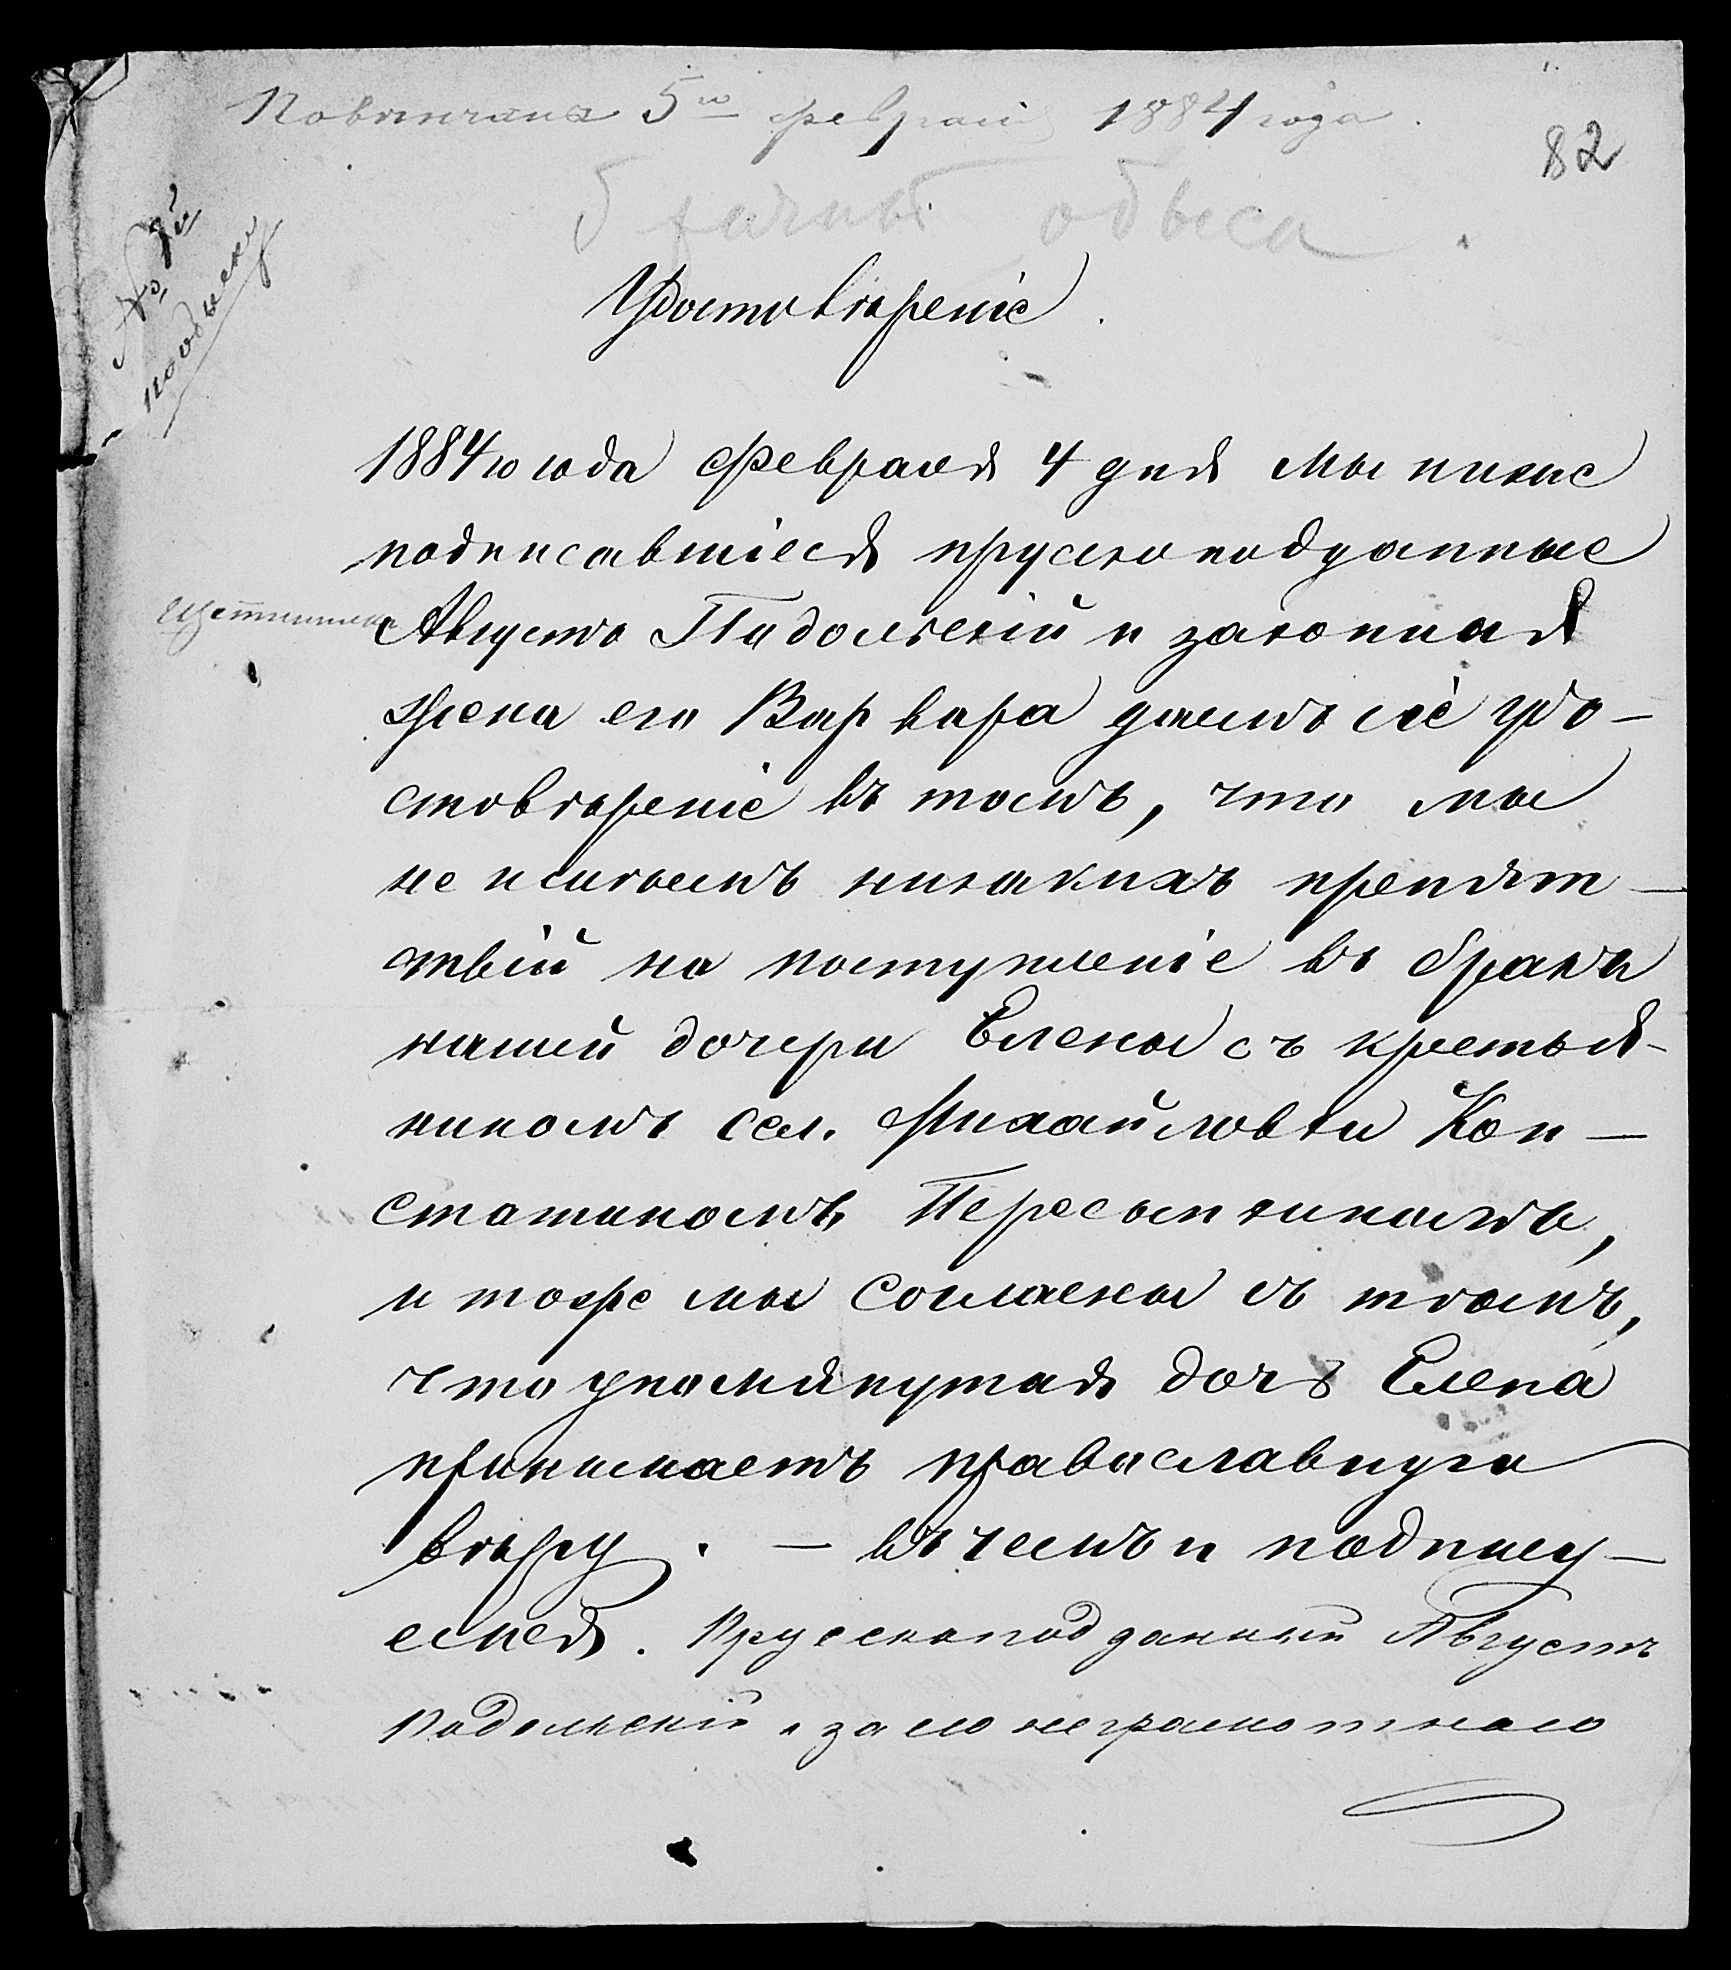 Повѣнчана 5го февраля 1884 года.
82
брачный обыск
№ 7й
по обыску
Удостовѣреніе.
1884го года Февраля 4 дня мы ниже
подписавшіеся прусскоподданные
Августъ Подольскій и законная
жена его Варвара даемъ сіе удо-
стовѣреніе въ томъ, что мы
не имѣемъ никакихъ препят-
ствій на поступленіе въ бракъ
нашей дочери Елены съ крестья-
ниномъ сел. Михайловки Кон-
стантиномъ Пересыпкинымъ,
и тоже мы согласны съ тѣмъ,
что упомянутая дочь Елена
принимаетъ православную
вѣру. — въ чемъ и подпису-
емся. Прусскоподданный Августъ
Подольскій, а за его неграмотного